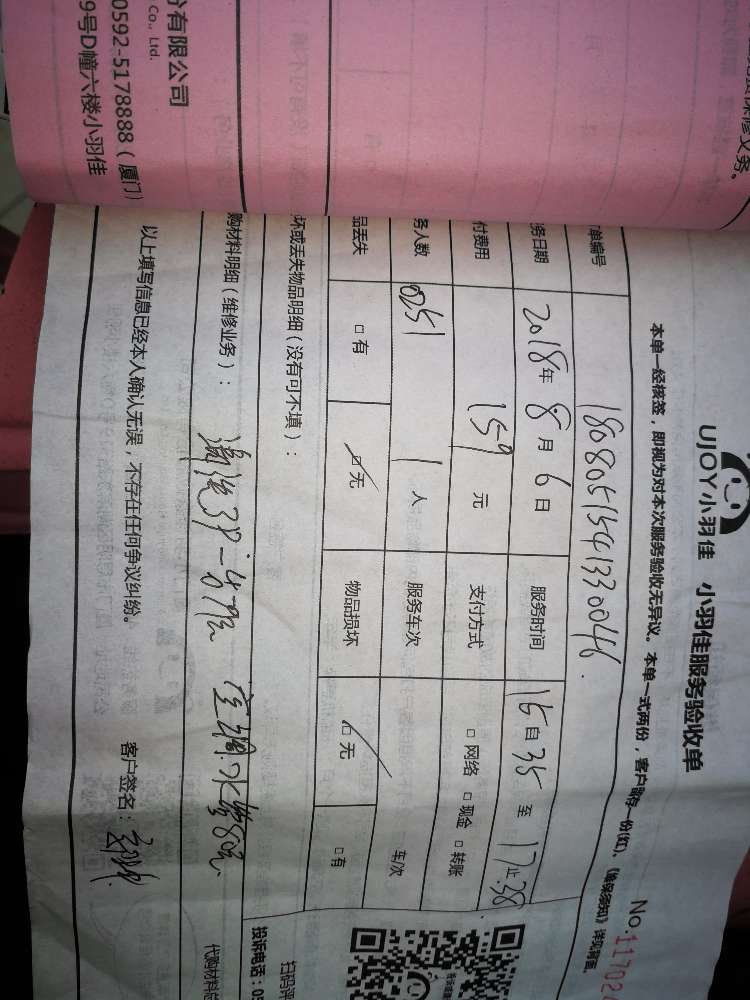 UJOY小羽佳 小羽佳服务验收单
No.11702
本单一经核签，即视为对本次服务验收无异议。本单一式两份，客户留存一份(红)、
单编号 180805154133004
务日期 2018年 8月 6日 服务时间 15自35 至 17止38
付费用 159 元 支付方式 □网络 □现金 □转账
务人数 0251 1 人 服务车次 车/次
品丢失 □有 □无 物品损坏 □无 □有
坏或丢失物品明细（没有可不填）：
购材料明细（维修业务）：
以上填写信息已经本人确认无误，不存在任何争议纠纷。
客户签名：
扫码评
投诉电话：05
代购材料总
修义务。
份有限公司
Co., Ltd.
0592-5178888（厦门）
9号D幢六楼小羽佳